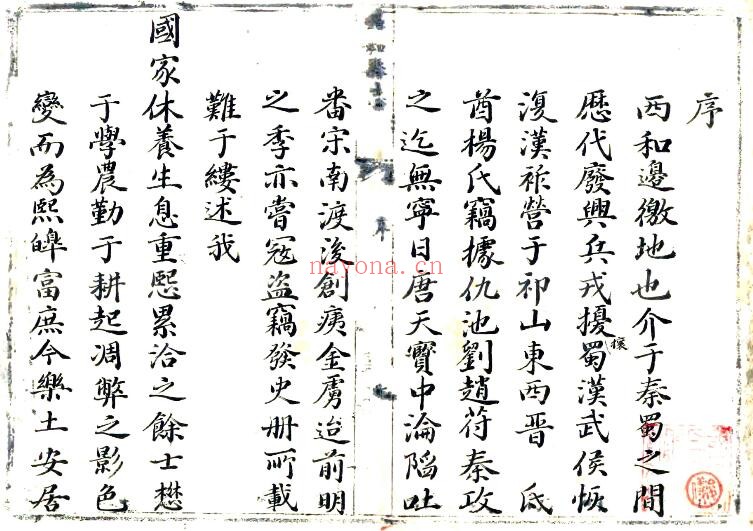 序
西和邊徼地也介于秦蜀之間
歷代廢興兵戎擾攘蜀漢武侯恢
復漢祚營于祁山東西晉 氐
酋楊氏竊據仇池劉趙苻秦攻
之迄無寧日唐天寶中淪陷吐
番宋南渡後創痍金虜迨前明
之季亦嘗寇盜竊發史册所載
難于縷述我
國家休養生息重熙累洽之餘士懋
于學農勤于耕起凋弊之影色
變而為熙皞富庶今樂土安居
序
nayona.cn